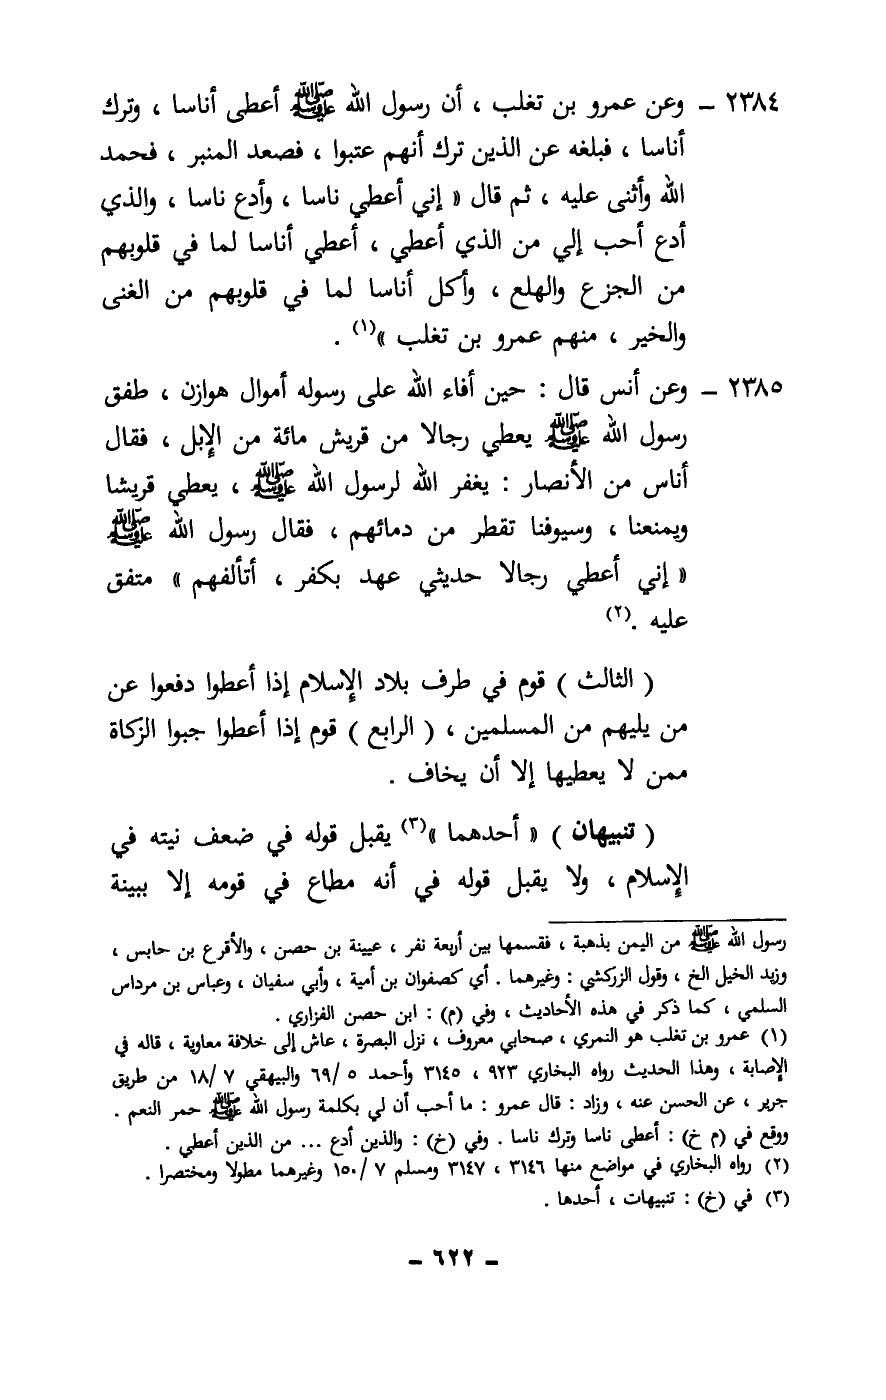 ٢٣٨٤ – وعن عمرو بن تغلب ، أن رسول الله ﷺ أعطى أناسا ، وترك
أناسا ، فبلغه عن الذين ترك أنهم عتبوا ، فصعد المنبر ، فحمد
الله وأثنى عليه ، ثم قال « إني أعطي ناسا ، وأدع ناسا ، والذي
أدع أحب إلي من الذي أعطي ، أعطي أناسا لما في قلوبهم
من الجزع والهلع ، وأكل أناسا لما في قلوبهم من الغنى
والخير ، منهم عمرو بن تغلب »(١) .
٢٣٨٥ – وعن أنس قال : حين أفاء الله على رسوله أموال هوازن ، طفق
رسول الله ﷺ يعطي رجالا من قريش مائة من الإبل ، فقال
أناس من الأنصار : يغفر الله لرسول الله ﷺ ، يعطي قريشا
ويمنعنا ، وسيوفنا تقطر من دمائهم ، فقال رسول الله ﷺ
« إني أعطي رجالا حديثي عهد بكفر ، أتألفهم » متفق
عليه .(٢)
( الثالث ) قوم في طرف بلاد الإسلام إذا أعطوا دفعوا عن
من يليهم من المسلمين ، ( الرابع ) قوم إذا أعطوا جبوا الزكاة
ممن لا يعطيها إلا أن يخاف .
( تنبيهان ) « أحدهما »(٣) يقبل قوله في ضعف نيته في
الإسلام ، ولا يقبل قوله في أنه مطاع في قومه إلا ببينة
رسول الله ﷺ من اليمن بذهبة ، فقسمها بين أربعة نفر ، عيينة بن حصن ، والأقرع بن حابس ،
وزيد الخيل الخ ، وقول الزركشي : وغيرهما . أي كصفوان بن أمية ، وأبي سفيان ، وعباس بن مرداس
السلمي ، كما ذكر في هذه الأحاديث ، وفي (م) : ابن حصن الفزاري .
(١) عمرو بن تغلب هو النمري ، صحابي معروف ، نزل البصرة ، عاش إلى خلافة معاوية ، قاله في
الإصابة ، وهذا الحديث رواه البخاري ٩٢٣ ، ٣١٤٥ وأحمد ٥ /٦٩ والبيهقي ٧ /١٨ من طريق
جرير ، عن الحسن عنه ، وزاد : قال عمرو : ما أحب أن لي بكلمة رسول الله ﷺ حمر النعم .
ووقع في (م خ) : أعطى ناسا وترك ناسا . وفي (خ) : والذين أدع ... من الذين أعطي .
(٢) رواه البخاري في مواضع منها ٣١٤٦ ، ٣١٤٧ ومسلم ٧ /١٥٠ وغيرهما مطولا ومختصرا .
(٣) في (خ) : تنبيهات ، أحدها .
– ٦٢٢ –